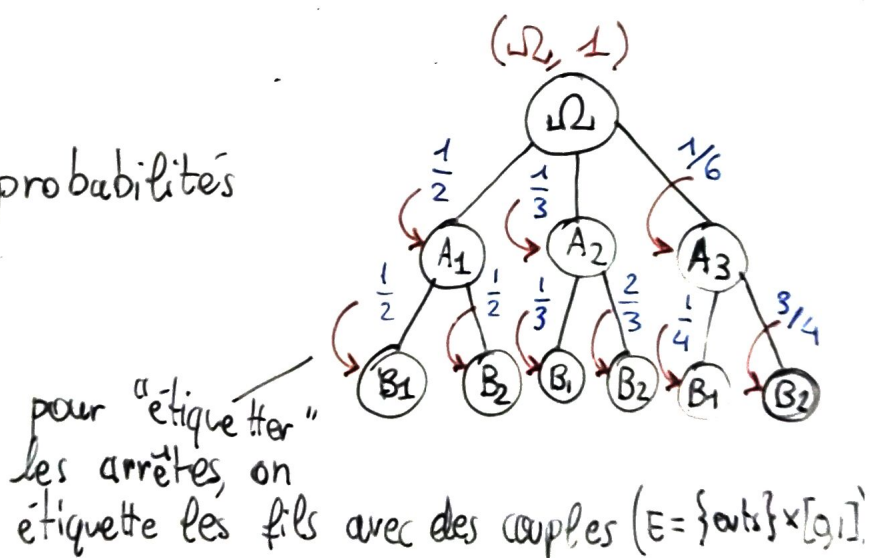 (Ω, 1)
Ω
probabilités
1/2 1/3 1/6
A1 A2 A3
1/2 1/2 1/3 2/3 1/4 3/4
B1 B2 B1 B2 B1 B2
pour "étiquetter"
les arrêtes, on
étiquette les fils avec des couples (E = {evts} × [0,1]